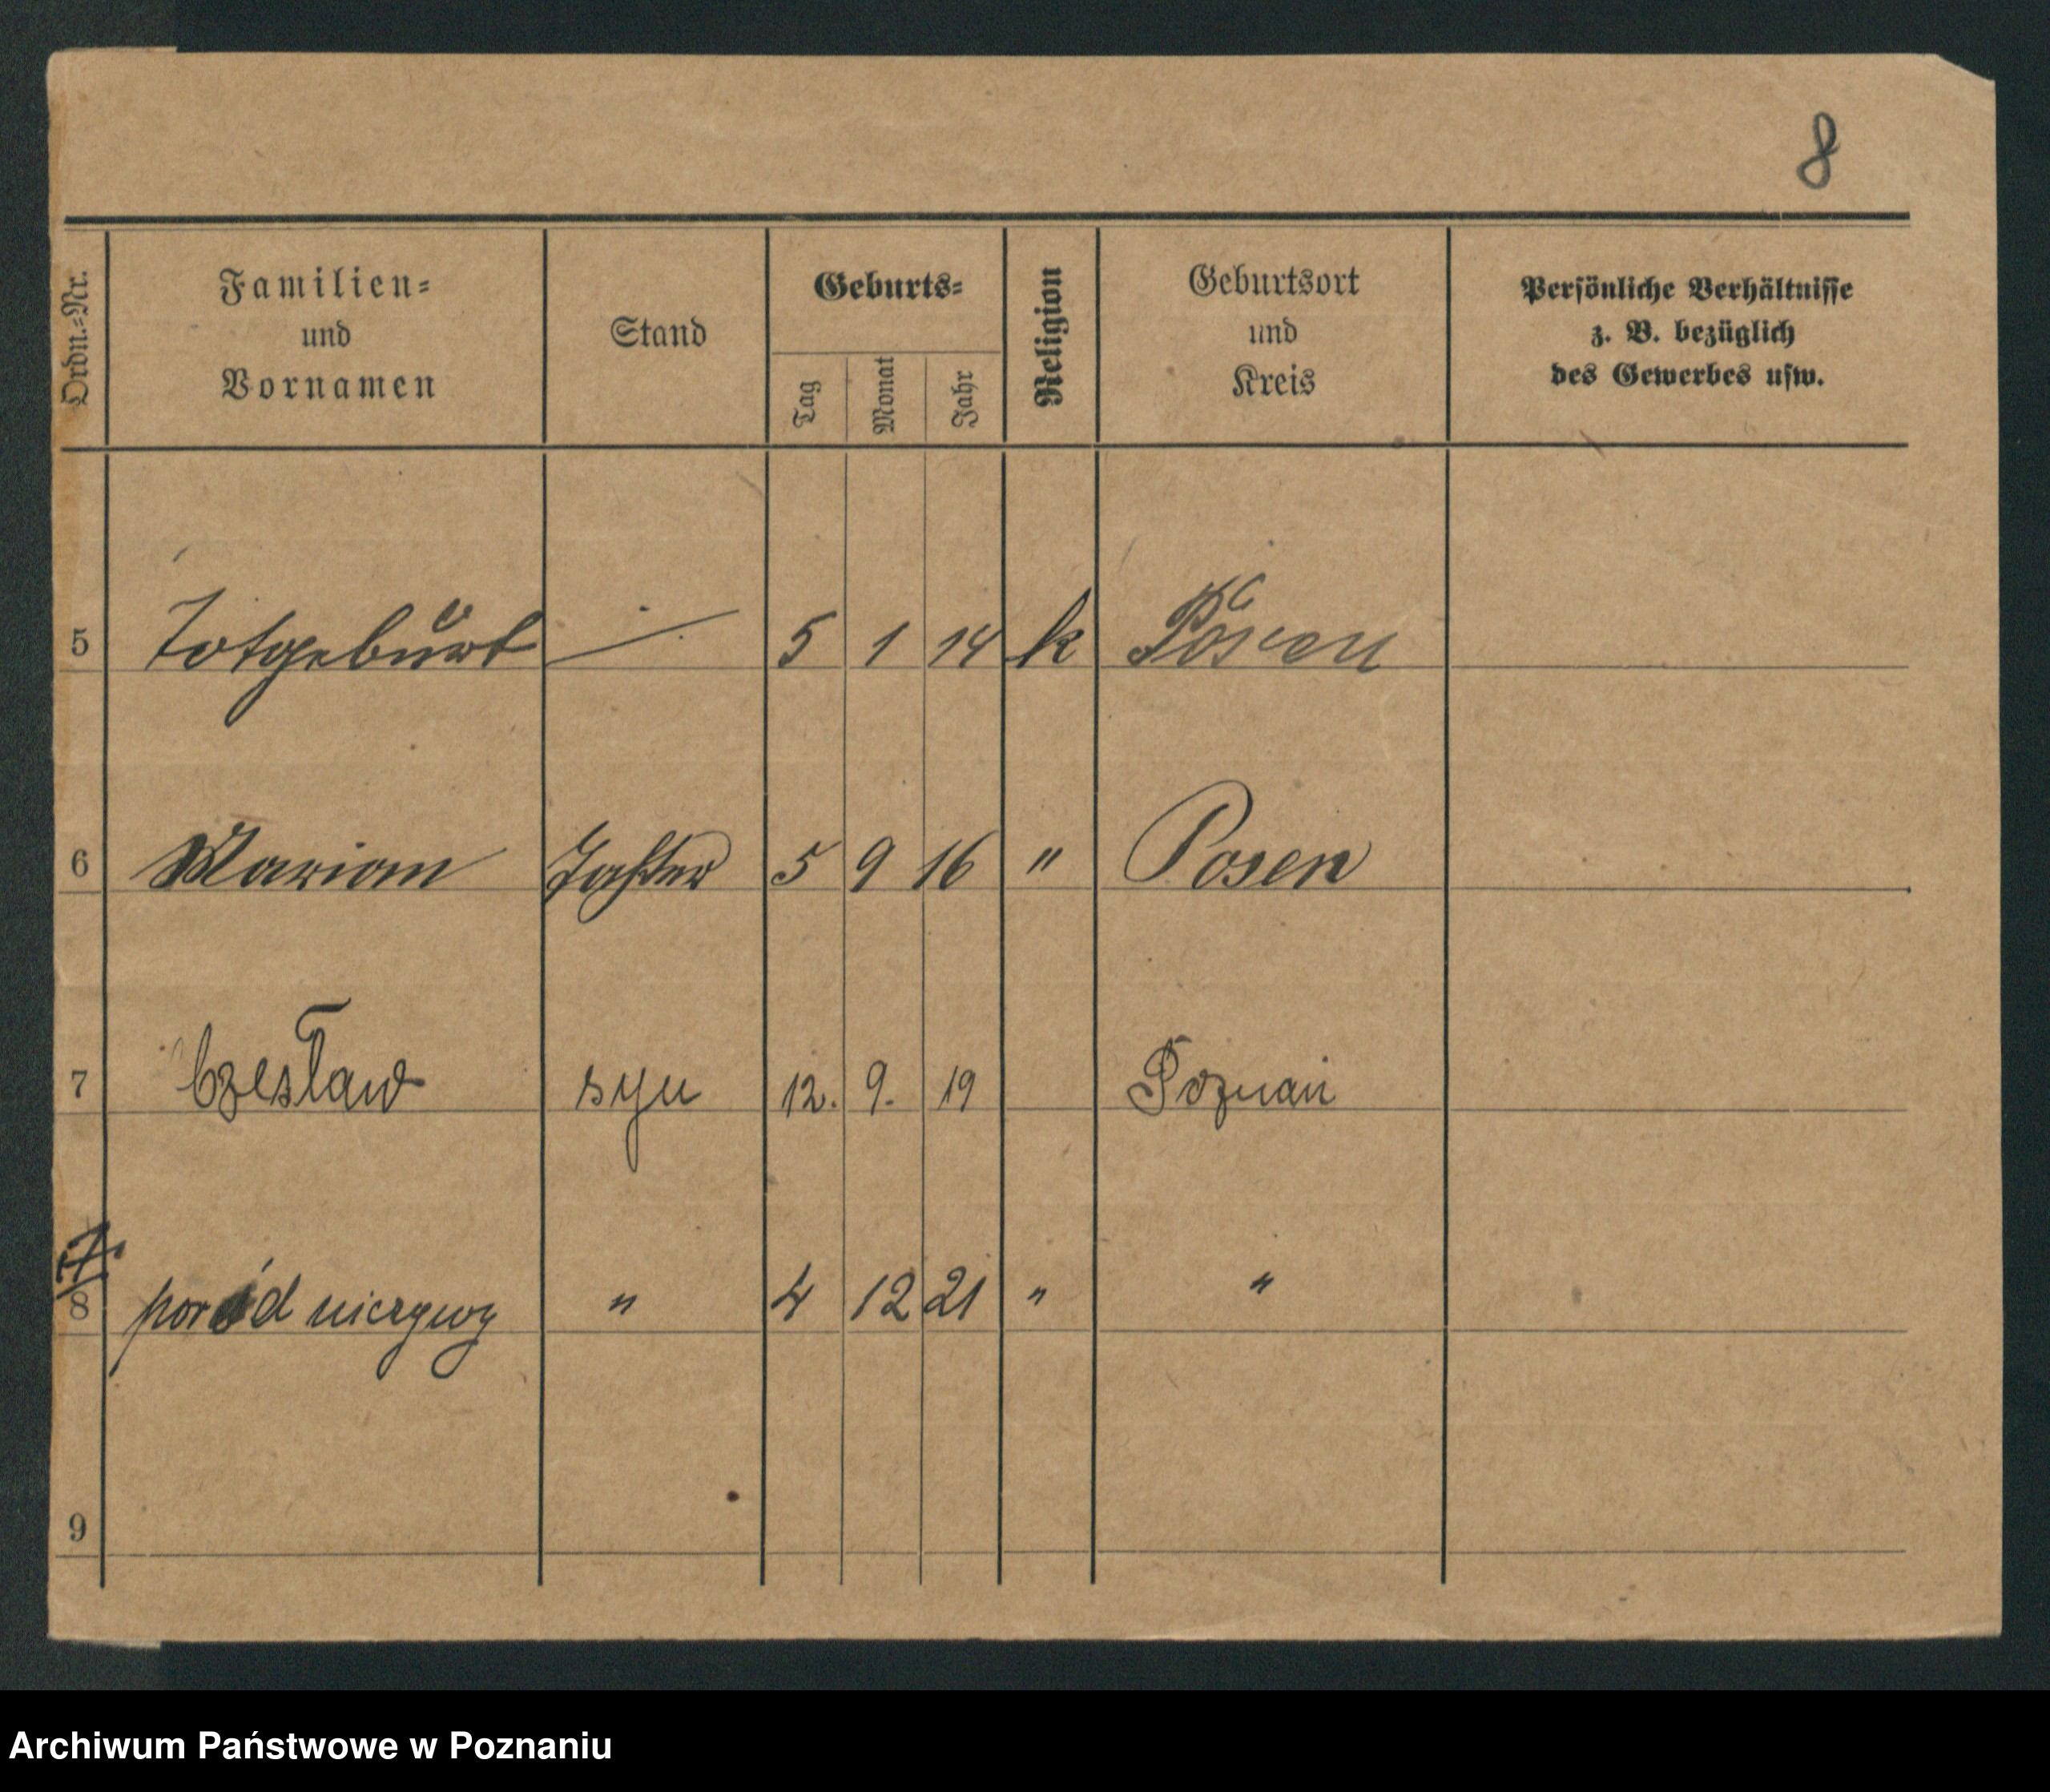 8
Ordn.-Nr.
Familien-
und
Vornamen
Stand
Geburts-
Tag
Monat
Jahr
Religion
Geburtsort
und
Kreis
Persönliche Verhältnisse
z. B. bezüglich
des Gewerbes usw.
5 Totgeburt — 5 1 14 k Posen
6 Mariam 5 9 16 " Posen
7 Czesław syn 12. 9. 19 Poznań
8 poród nieżywy " 4 12 21 " "
9
Archiwum Państwowe w Poznaniu